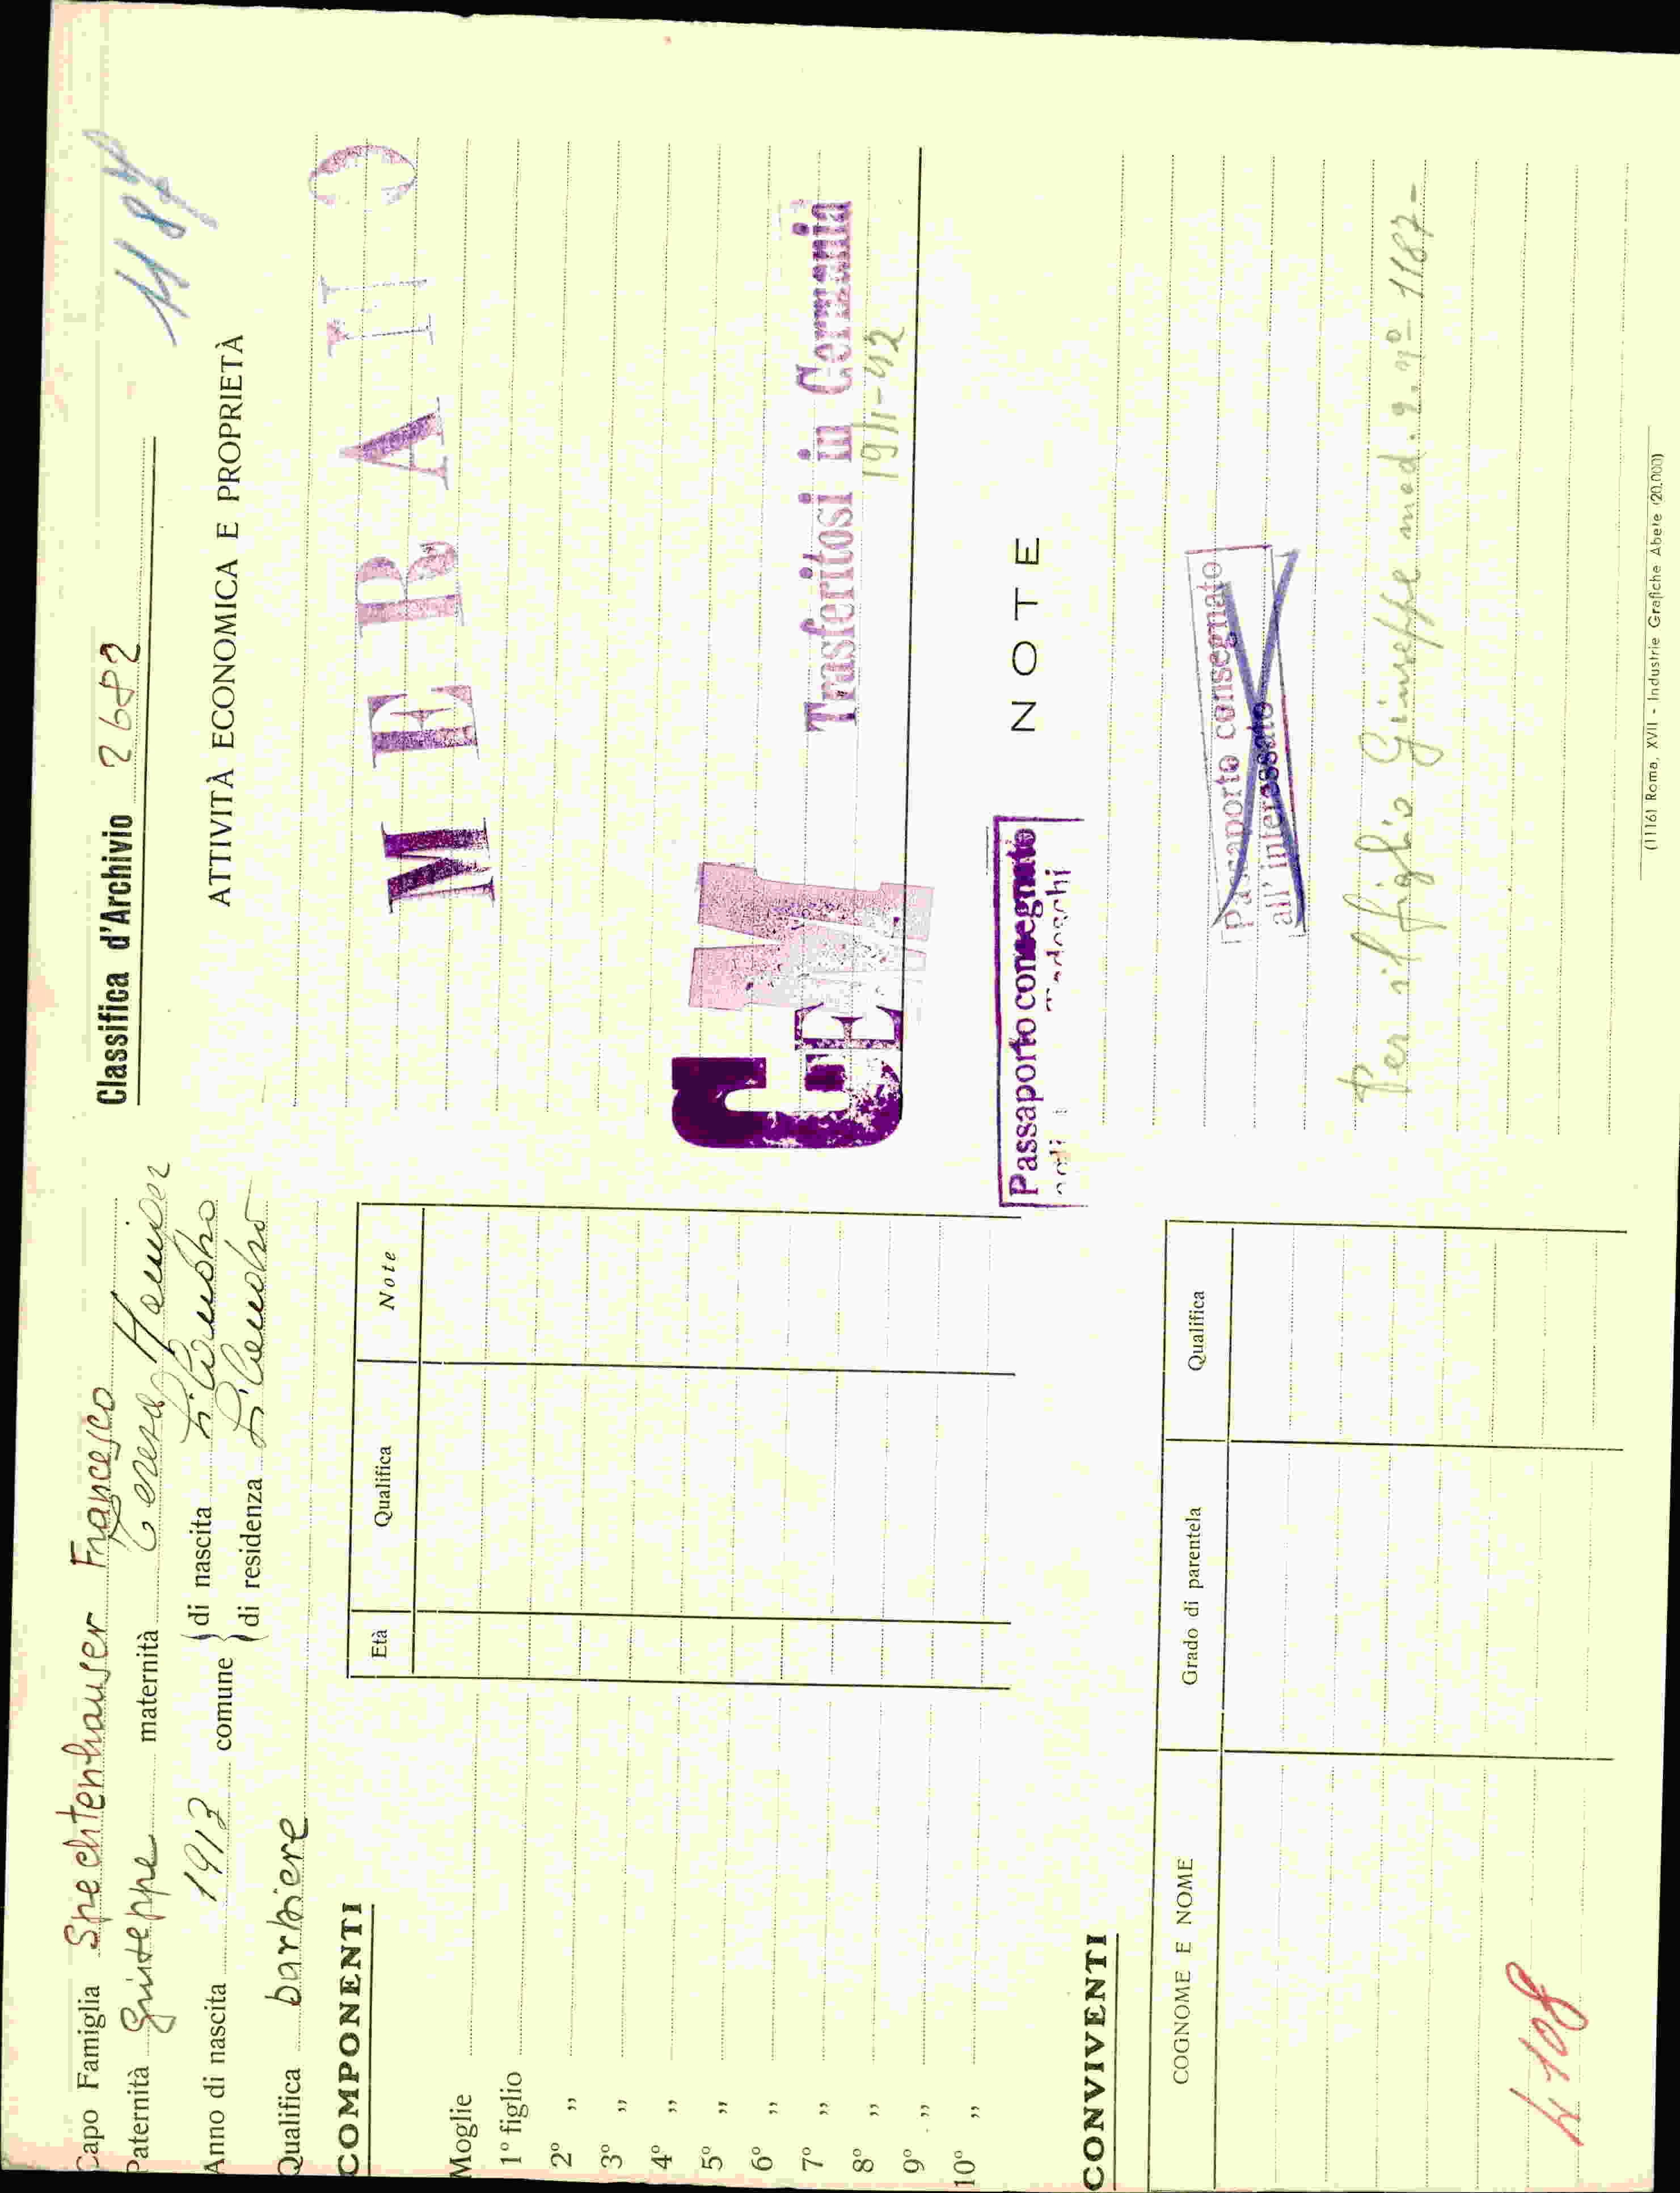 Capo Famiglia Spechtenhauser Francesco
Paternità Giuseppe maternità Teresa
Anno di nascita 1913 comune di nascita
di residenza
Qualifica barbiere
COMPONENTI
Età Qualifica Note
Moglie
1º figlio
2º „
3º „
4º „
5º „
6º „
7º „
8º „
9º „
10º „
CONVIVENTI
COGNOME E NOME Grado di parentela Qualifica
4108
Classifica d'Archivio 2682
1187
ATTIVITÀ ECONOMICA E PROPRIETÀ
MERANO
G M
GE
Trasferitosi in Germania
19/1-42
NOTE
Passaporto consegnato
Tedeschi
Passaporto consegnato
all'interessato
Per il figlio Giuseppe mod. 9. nº 1187-
(1116) Roma, XVII - Industrie Grafiche Abete (20.000)